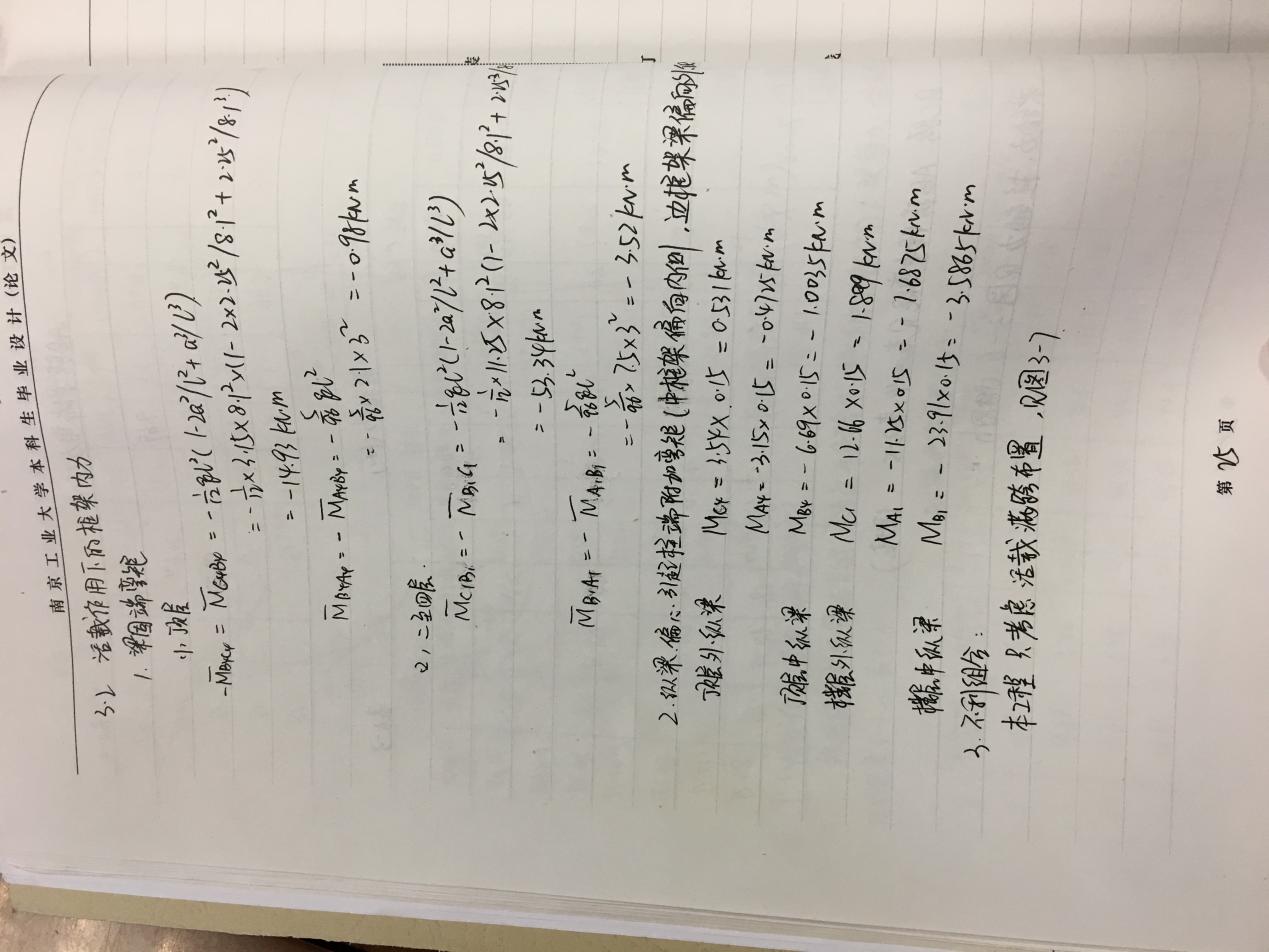 南京工业大学本科生毕业设计(论文)
3.2 活载作用下的框架内力
1. 梁固端弯矩
1). 顶层
-M̅B4C4 = M̅C4B4 = -1/12 ql²(1-2a²/l²+a³/l³)
= -1/12×3.15×8.1²×(1-2×2.25²/8.1²+2.25²/8.1³)
= -14.93 kN·m
M̅B4A4 = -M̅A4B4 = -5/96 ql²
= -5/96×2.1×3² = -0.98kN·m
2), 二至四层.
M̅C1B1 = -M̅B1C1 = -1/12 ql²(1-2a²/l²+a³/l³)
= -1/12×11.25×8.1²(1-2×2.25²/8.1²+2.25³/8
= -53.34kN·m
M̅B1A1 = -M̅A1B1 = -5/96 ql²
= -5/96×7.5×3² = -3.52kN·m
2. 纵梁偏心引起柱端附加弯矩(中框架偏向内侧,边框架梁偏向外
顶层外纵梁 MC4 = 3.54×0.15 = 0.531kN·m
MA4 = -3.15×0.15 = -0.4725kN·m
顶层中纵梁 MB4 = -6.69×0.15 = -1.0035kN·m
楼层外纵梁 MC1 = 12.66×0.15 = 1.899kN·m
MA1 = -11.25×0.15 = -1.6875kN·m
楼层中纵梁 MB1 = -23.91×0.15 = -3.5865kN·m
3. 不利组合:
本工程只考虑活载满跨布置,见图3-7
第 25 页